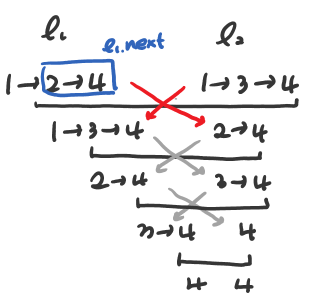 l₁ l₁.next l₂
1→2→4 1→3→4
1→3→4 2→4
2→4 3→4
3→4 4
4 4